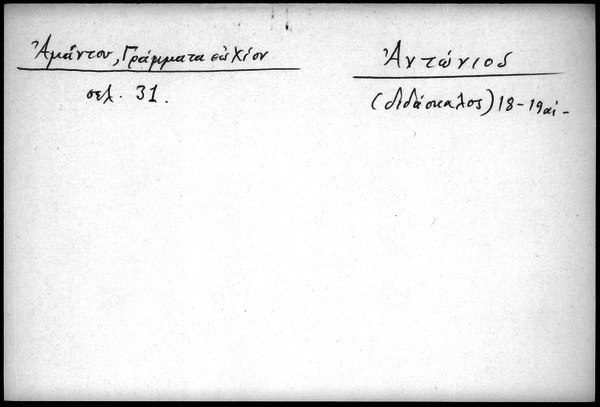 Ἀμάντου, Γράμματα εἰς Χίον
σελ. 31.
Ἀντώνιος
(διδάσκαλος) 18-19 αἰ-